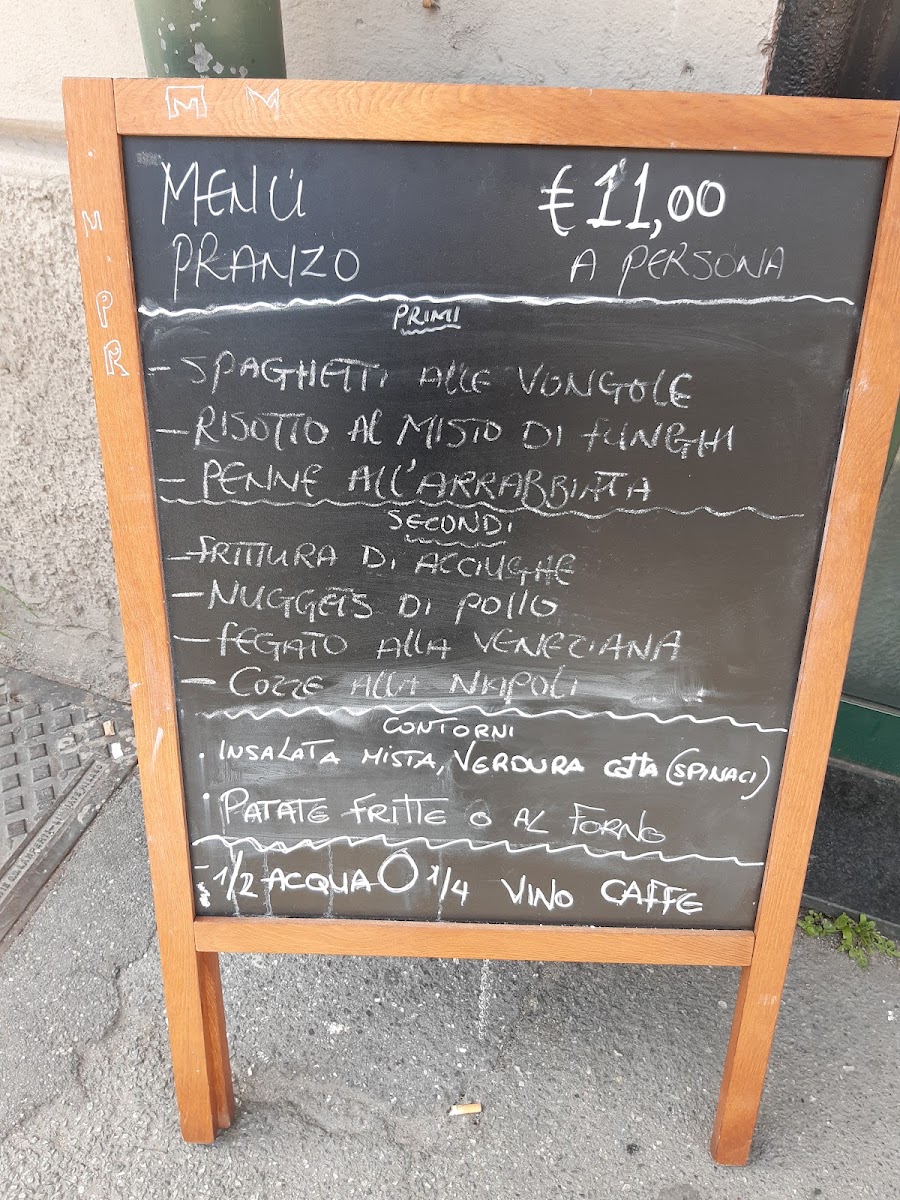 M M
M. P R
MENÚ € 11,00
PRANZO A PERSONA
PRIMI
- SPAGHETTI ALLE VONGOLE
- RISOTTO AL MISTO DI FUNGHI
- PENNE ALL'ARRABBIATA
SECONDI
- FRITTURA DI ACCIUGHE
- NUGGETS DI POLLO
- FEGATO ALLA VENEZIANA
- COZZE ALLA NAIPOLI
CONTORNI
. INSALATA MISTA, VERDURA COTTA (SPINACI)
. PATATE FRITTE O AL FORNO
- 1/2 ACQUA O 1/4 VINO CAFFE